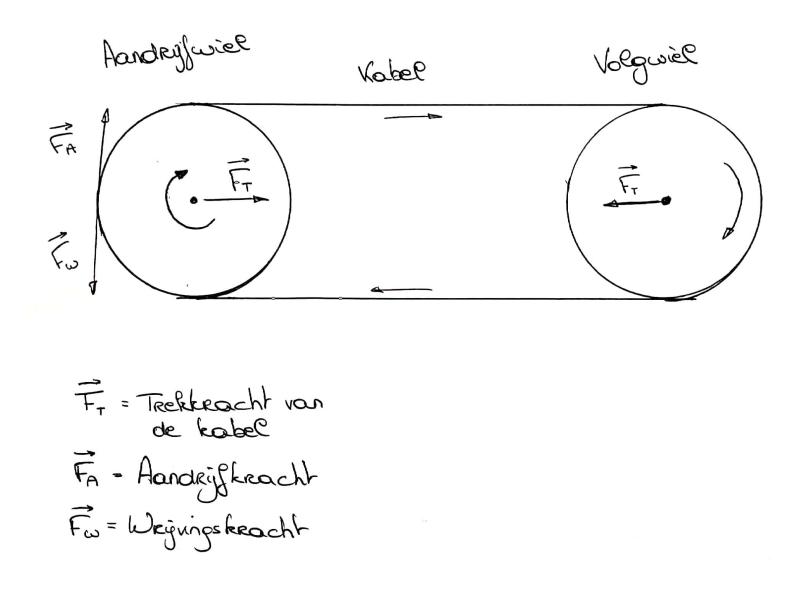 Aandrijfwiel
Kabel
Volgwiel
F_A
F_T
F_T
F_w
F_T = Trekkracht van
de kabel
F_A = Aandrijfkracht
F_w = Wrijvingskracht